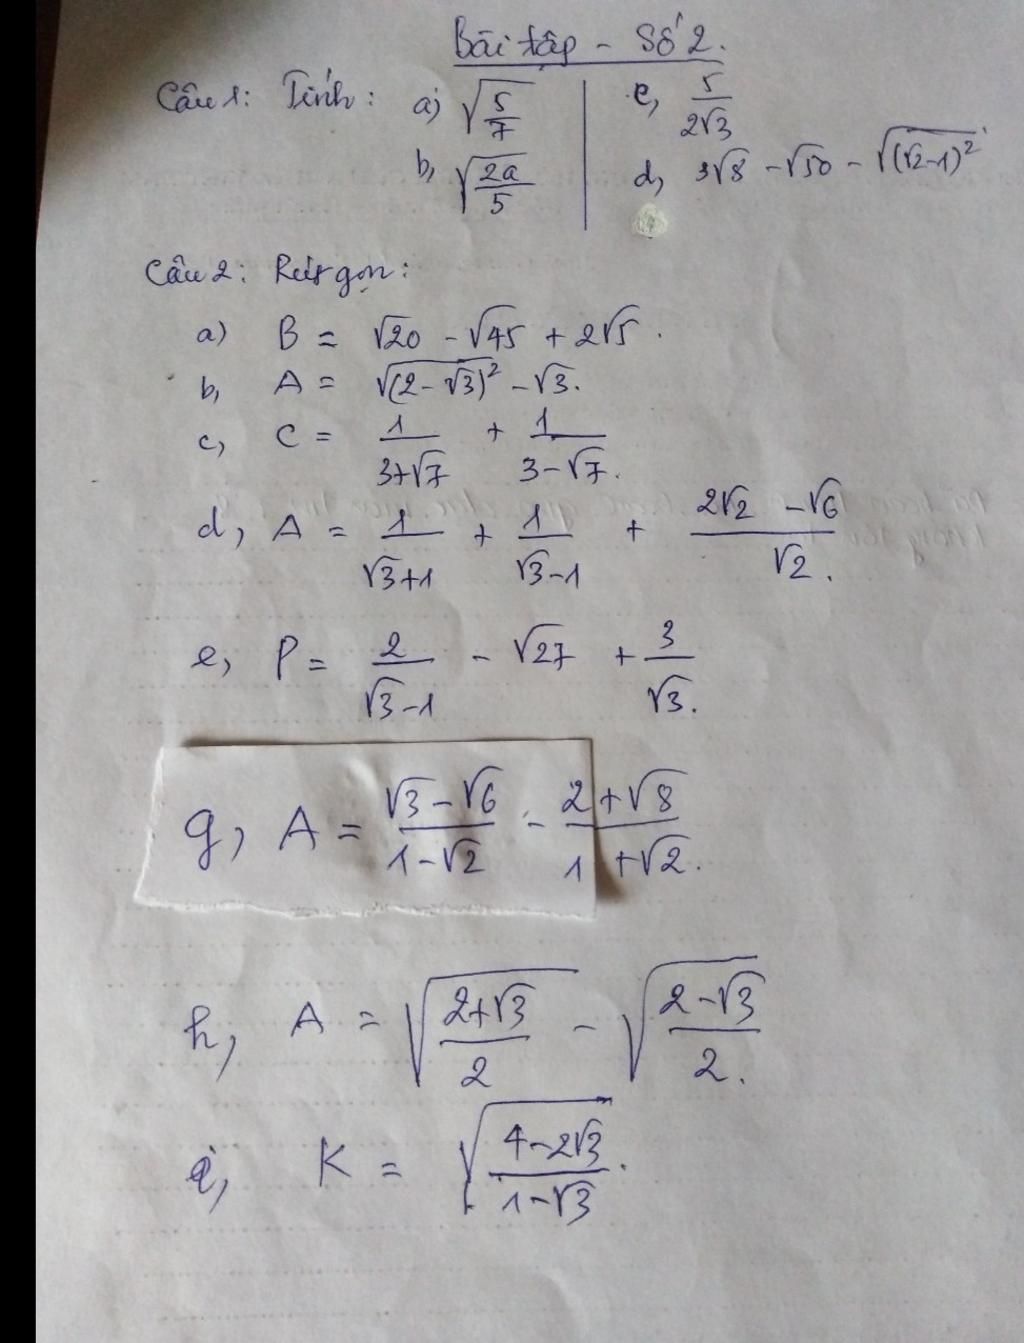 Bài tập - Số 2.
Câu 1: Tính: a) √(5/7)
b, √(2a/5)
c, 5/(2√3)
d, 3√8 - √50 - √((√2-1)²)
Câu 2: Rút gọn:
a) B = √20 - √45 + 2√5.
b, A = √((2-√3)²) - √3.
c, C = 1/(3+√7) + 1/(3-√7).
d, A = 1/(√3+1) + 1/(√3-1) + (2√2 - √6)/√2.
e, P = 2/(√3-1) - √27 + 3/√3.
g, A = (√3-√6)/(1-√2) - (2+√8)/(1+√2).
h, A = √((2+√3)/2) - √((2-√3)/2).
i, K = √((4-2√3)/(1-√3)).